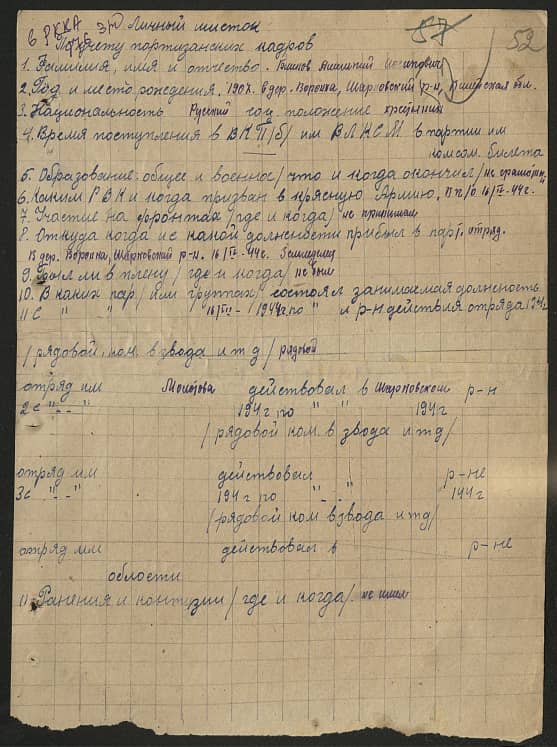 в РККА
Личный листок 57 52
По учету партизанских кадров
1. Фамилия, имя и отчество.
2. Год и место рождения. 190 г. в дер. Воронка, р-н,
3. Национальность Русский соц. положение крестьянин
4. Время поступления в ВКП/б/ им ВЛКСМ в партии им
комсом. билета
5. Образование: общее и военное/ что и когда окончил/ не грамотн
6. Каким РВК и когда призван в красную Армию. 16/ -44г.
7. Участие на фронтах /где и когда/ не принимал
8. Откуда когда и с какой должности прибыл в отряд.
дер. Воронка, р-н. 16/ -44г.
9. Был ли в плену / где и когда/ не был
10. В каких пар / или группах/ состоял занимаемая должность
11 с " " " 16/ - 1944г. по " и р-н действия отряда 194г
/ рядовой, ком. взвода и т д / рядовой
отряд им Молотова действовал в р-н
2 с "- -" 194 г. по " " 194 г
/ рядовой ком взвода и тд/
отряд им действовал р-не
3 с "- -" 194 г по "- -" 144 г
/ рядовой ком взвода и тд/
отряд им действовал в р-не
области
11. Ранения и контузии / где и когда/. не имел